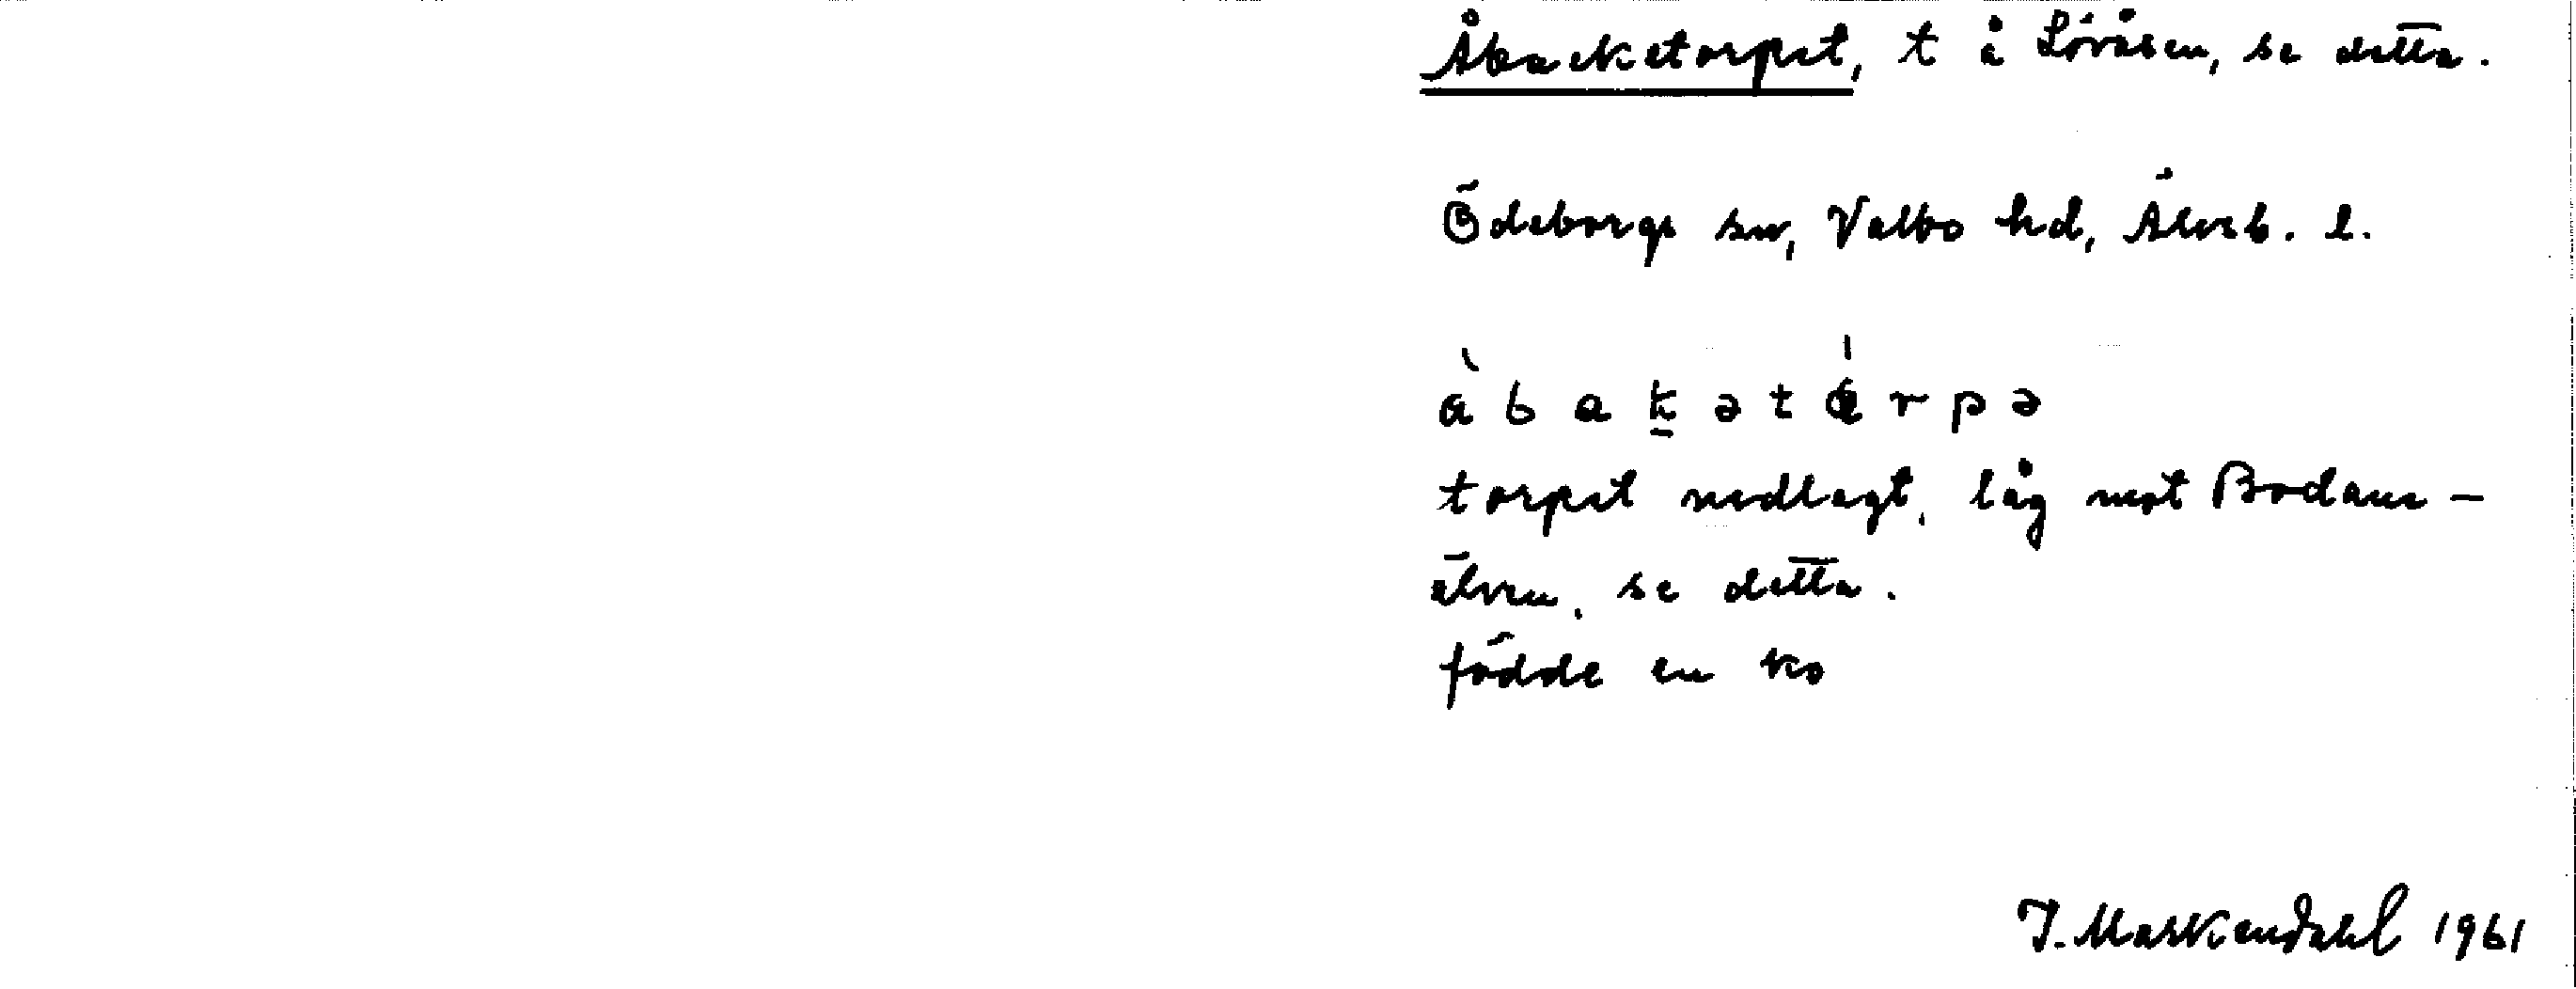 Åbacketorpet, t å Lövåsen, se detta.
Ödeborgs sn, Valbo hd, Älvsb. l.
à b a k̲ ə t ó r p ə
torpet nedlagt, låg mot Bodane-
älven, se detta.
födde en ko
J. Markendahl 1961